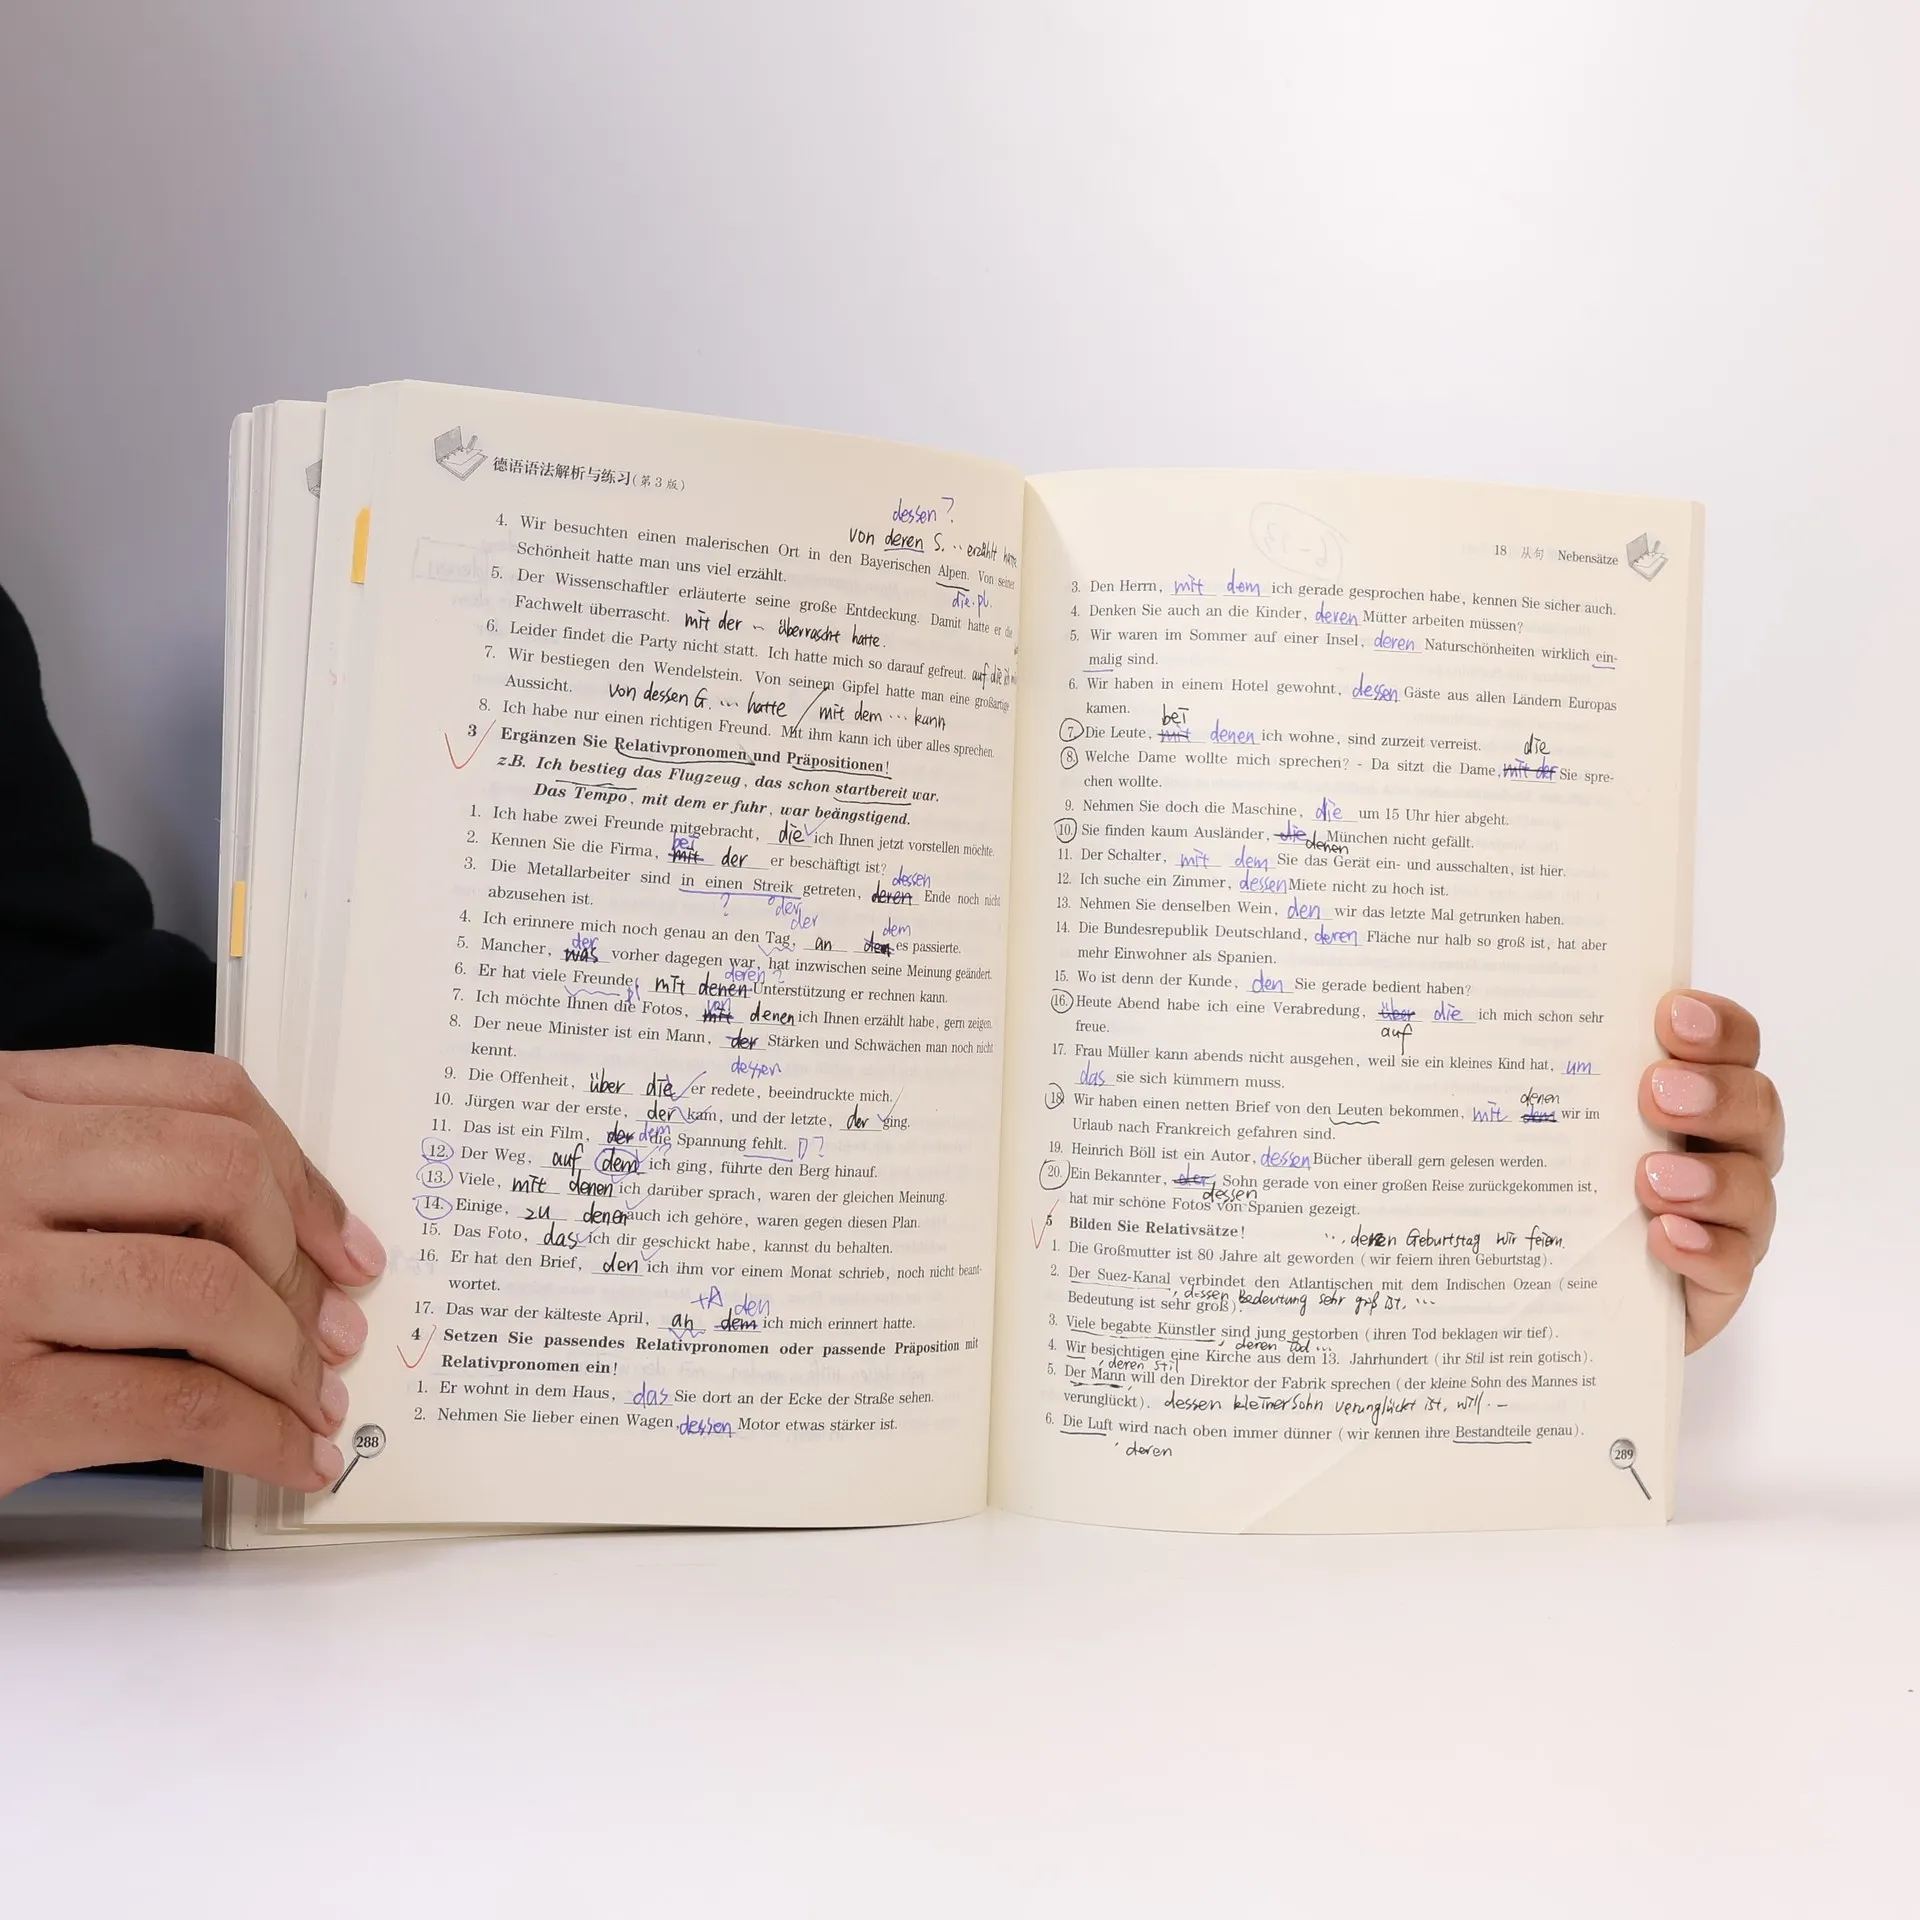 德语语法解析与练习(第3版)
dessen?
von deren S. ... erzählt hatte
4. Wir besuchten einen malerischen Ort in den Bayerischen Alpen. Von seiner
Schönheit hatte man uns viel erzählt.
die.pl.
5. Der Wissenschaftler erläuterte seine große Entdeckung. Damit hatte er die
Fachwelt überrascht. mit der ~ überrascht hatte.
6. Leider findet die Party nicht statt. Ich hatte mich so darauf gefreut. auf die ich
7. Wir bestiegen den Wendelstein. Von seinem Gipfel hatte man eine großartige
Aussicht. von dessen G. ... hatte / mit dem ... kann
8. Ich habe nur einen richtigen Freund. Mit ihm kann ich über alles sprechen.
3 Ergänzen Sie Relativpronomen und Präpositionen!
z.B. Ich bestieg das Flugzeug, das schon startbereit war.
Das Tempo, mit dem er fuhr, war beängstigend.
1. Ich habe zwei Freunde mitgebracht, die ich Ihnen jetzt vorstellen möchte.
bei
2. Kennen Sie die Firma, mit der er beschäftigt ist?
dessen
3. Die Metallarbeiter sind in einen Streik getreten, deren Ende noch nicht
abzusehen ist. ? der
der dem
4. Ich erinnere mich noch genau an den Tag, an den es passierte.
der
5. Mancher, was vorher dagegen war, hat inzwischen seine Meinung geändert.
deren?
6. Er hat viele Freunde, mit denen Unterstützung er rechnen kann.
pl von
7. Ich möchte Ihnen die Fotos, mit denen ich Ihnen erzählt habe, gern zeigen.
8. Der neue Minister ist ein Mann, der Stärken und Schwächen man noch nicht
kennt. dessen
9. Die Offenheit, über die er redete, beeindruckte mich.
10. Jürgen war der erste, der kam, und der letzte, der ging.
11. Das ist ein Film, der dem die Spannung fehlt. D?
12. Der Weg, auf dem ich ging, führte den Berg hinauf.
13. Viele, mit denen ich darüber sprach, waren der gleichen Meinung.
14. Einige, zu denen auch ich gehöre, waren gegen diesen Plan.
15. Das Foto, das ich dir geschickt habe, kannst du behalten.
16. Er hat den Brief, den ich ihm vor einem Monat schrieb, noch nicht beant-
wortet.
+A den
17. Das war der kälteste April, an dem ich mich erinnert hatte.
4 Setzen Sie passendes Relativpronomen oder passende Präposition mit
Relativpronomen ein!
1. Er wohnt in dem Haus, das Sie dort an der Ecke der Straße sehen.
2. Nehmen Sie lieber einen Wagen, dessen Motor etwas stärker ist.
288
18 从句 Nebensätze
3. Den Herrn, mit dem ich gerade gesprochen habe, kennen Sie sicher auch.
4. Denken Sie auch an die Kinder, deren Mütter arbeiten müssen?
5. Wir waren im Sommer auf einer Insel, deren Naturschönheiten wirklich ein-
malig sind.
6. Wir haben in einem Hotel gewohnt, dessen Gäste aus allen Ländern Europas
kamen.
bei
7. Die Leute, mit denen ich wohne, sind zurzeit verreist.
die
8. Welche Dame wollte mich sprechen? - Da sitzt die Dame, mit der Sie spre-
chen wollte.
9. Nehmen Sie doch die Maschine, die um 15 Uhr hier abgeht.
10. Sie finden kaum Ausländer, die München nicht gefällt.
denen
11. Der Schalter, mit dem Sie das Gerät ein- und ausschalten, ist hier.
12. Ich suche ein Zimmer, dessen Miete nicht zu hoch ist.
13. Nehmen Sie denselben Wein, den wir das letzte Mal getrunken haben.
14. Die Bundesrepublik Deutschland, deren Fläche nur halb so groß ist, hat aber
mehr Einwohner als Spanien.
15. Wo ist denn der Kunde, den Sie gerade bedient haben?
16. Heute Abend habe ich eine Verabredung, über die ich mich schon sehr
freue. auf
17. Frau Müller kann abends nicht ausgehen, weil sie ein kleines Kind hat, um
das sie sich kümmern muss.
denen
18. Wir haben einen netten Brief von den Leuten bekommen, mit dem wir im
Urlaub nach Frankreich gefahren sind.
19. Heinrich Böll ist ein Autor, dessen Bücher überall gern gelesen werden.
20. Ein Bekannter, der Sohn gerade von einer großen Reise zurückgekommen ist,
dessen
hat mir schöne Fotos von Spanien gezeigt.
5 Bilden Sie Relativsätze!
..., deren Geburtstag wir feiern.
1. Die Großmutter ist 80 Jahre alt geworden (wir feiern ihren Geburtstag).
2. Der Suez-Kanal verbindet den Atlantischen mit dem Indischen Ozean (seine
Bedeutung ist sehr groß). , dessen Bedeutung sehr groß ist, ...
3. Viele begabte Künstler sind jung gestorben (ihren Tod beklagen wir tief).
, deren Tod ...
4. Wir besichtigen eine Kirche aus dem 13. Jahrhundert (ihr Stil ist rein gotisch).
, deren Stil
5. Der Mann will den Direktor der Fabrik sprechen (der kleine Sohn des Mannes ist
verunglückt). dessen kleiner Sohn verunglückt ist, will ...
6. Die Luft wird nach oben immer dünner (wir kennen ihre Bestandteile genau).
, deren
289